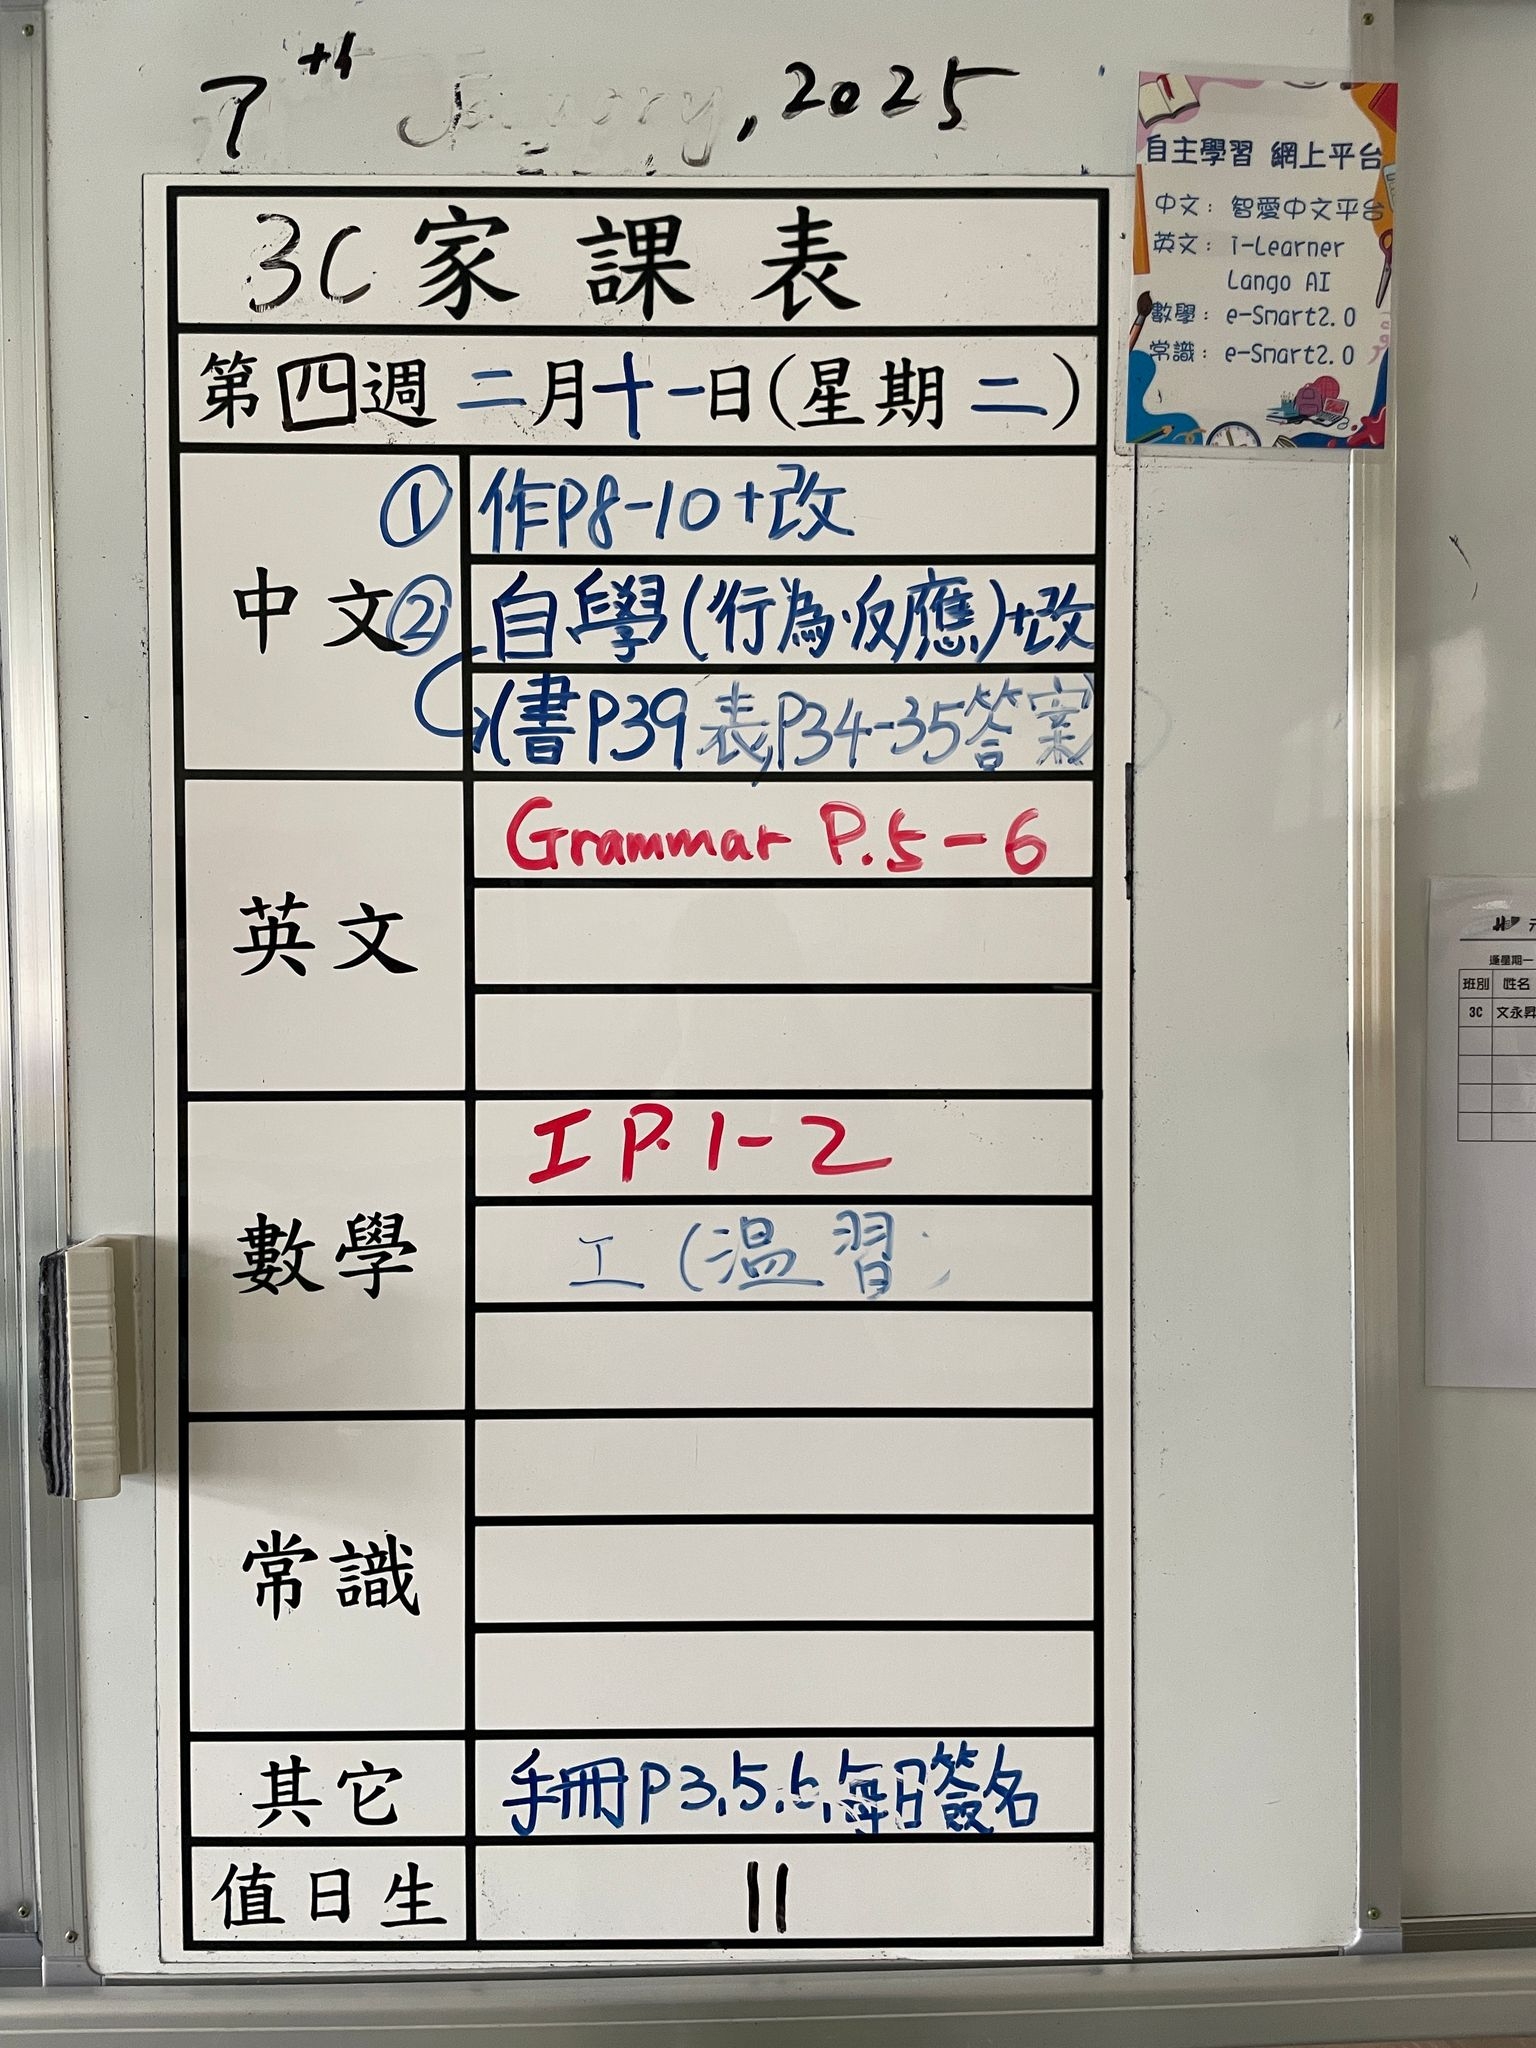 7th January, 2025
3C 家課表
第四週 二月十一日(星期二)
中文
① 作P8-10+改
② 自學(行為‧反應)+改
(書P39 表P34-35答案)
英文
Grammar P.5-6
數學
工 P.1-2
工(温習)
常識
其它
手冊P3,5,6,每日簽名
值日生
11
自主學習 網上平台
中文：智愛中文平台
英文：i-Learner
Lango AI
數學：e-Smart2.0
常識：e-Smart2.0
逢星期一
班別 姓名
3C 文永昇